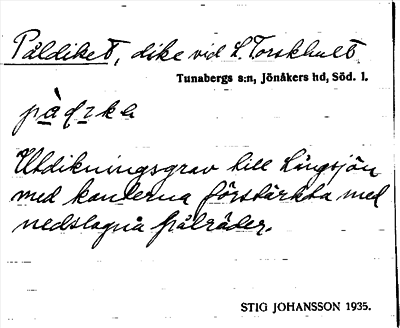 Påldiket, dike vid L. Torskhult
Tunabergs s:n, Jönåkers hd, Söd. l.
Utdikningsgrav till Långsjön
med kanterna förstärkta med
nedslagna pålräder.
STIG JOHANSSON 1935.